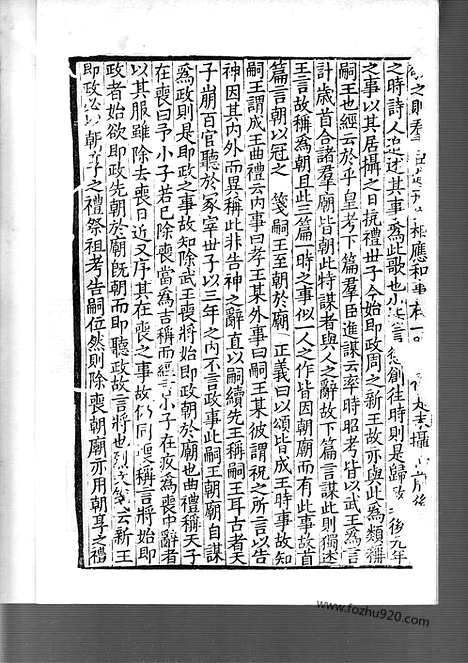 之則羣臣 相應和事
之時詩人追述其事爲此歌也小 言 創往時則是歸 後元年
之事以其居攝之日抗禮世子今始即政周之新王故亦與此爲類稱
嗣王也經云於乎皇考下篇羣臣進謀云率時昭考皆以武王爲言
計歲首合諸羣廟皆朝此特謀者與人之辭故下篇言謀此則獨述
王言故稱爲朝且此三篇一時之事似一人之作皆因朝廟而有此事故首
篇言朝以冠之 箋嗣王至朝於廟 正義曰以頌皆成王時事故知
嗣王謂成王曲禮云内事曰孝王某外事曰嗣王某彼謂祝之所言以告
神因其内外而異稱此非告神之辭直以嗣續先王稱嗣王耳古者天
子崩百官聽於冢宰世子以三年之内不言政事此嗣王朝廟自謀
爲政則是即政之事故知除武王喪將始即政朝於廟也曲禮稱天子
在喪曰予小子若已除喪當爲吉稱而經言小子在疚爲喪中辭者
以其服雖除去喪日近又序其在喪之事故仍同喪稱言將始即
政者始欲即政先朝於廟既朝而即聽政故言將也 云新王
即政必以朝享之禮祭祖考告嗣位然則除喪朝廟亦用朝享之禮
www.fozhu920.com